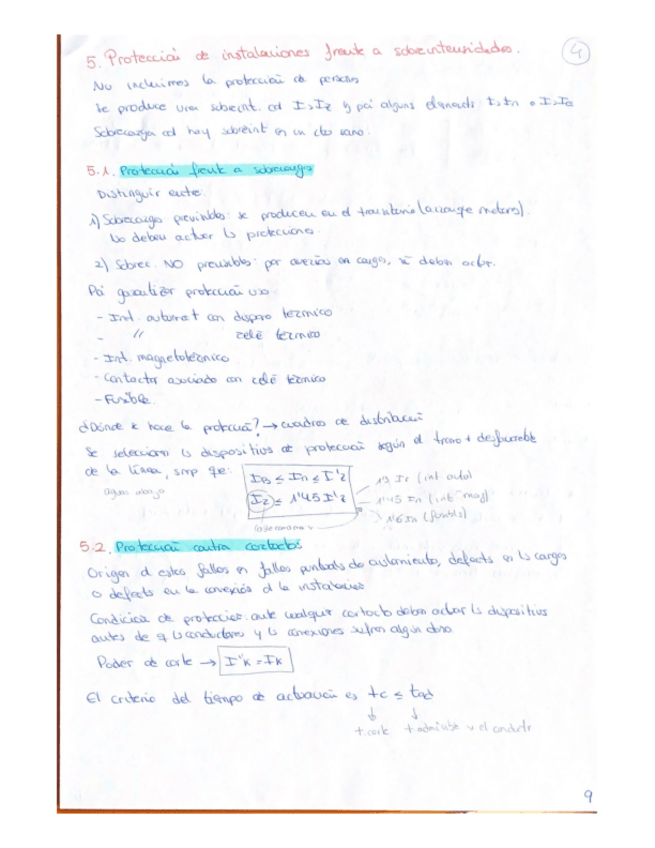 5. Protección de instalaciones frente a sobreintensidades.
4
No incluimos la protección de personas
Se produce una sobreint. cd I>Iz y pa algunos elementos I>In o I>IB
Sobrecarga cd hay sobreint en un cto sano.
5.1. Protección frente a sobrecargas
Distinguir entre:
1) Sobrecargas previsibles: se producen en el transitorio (arranque motores).
No deben actuar las protecciones.
2) Sobrec. NO previsibles: por averías en cargas, sí deben actuar.
Pa garantizar protección uso:
- Int. automat con disparo térmico
- // relé térmico
- Int. magnetotérmico
- Contactor asociado con relé térmico
- Fusible.
¿Dónde se hace la protección? → cuadros de distribución
Se seleccionan ls dispositivos de protección según el tramo + desfavorable
de la línea, smp que:
aguas abajo
IB ≤ In ≤ I'z
I2 ≤ 1'45 I'z
1'45 In (int mag)
1'6 In (fusible)
5.2. Protección contra cortoctos
Origen d estos fallos en fallos puntuales de aislamiento, defectos en ls cargas
o defectos en la conexión d la instalación
Condición de protección: ante cualquier cortocto deben actuar ls dispositivos
antes de q ls conductores y ls conexiones sufran algún daño.
Poder de corte → I"k = Ik
El criterio del tiempo de actuación es tc ≤ tad
t. corte t. admisible x el conductor
9